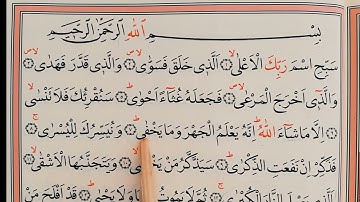 بِسْمِ اللّٰهِ الرَّحْمٰنِ الرَّحِيْمِ
سَبِّحِ اسْمَ رَبِّكَ الْاَعْلَىۙ ۝ الَّذِيْ خَلَقَ فَسَوّٰىۙ ۝ وَالَّذِيْ قَدَّرَ فَهَدٰىۙ ۝
وَالَّذِيْ اَخْرَجَ الْمَرْعٰىۙ ۝ فَجَعَلَهٗ غُثَآءً اَحْوٰىۜ ۝ سَنُقْرِئُكَ فَلَا تَنْسٰىۙ ۝
اِلَّا مَا شَآءَ اللّٰهُۜ اِنَّهٗ يَعْلَمُ الْجَهْرَ وَمَا يَخْفٰىۜ ۝ وَنُيَسِّرُكَ لِلْيُسْرٰىۚ ۝
فَذَكِّرْ اِنْ نَفَعَتِ الذِّكْرٰىۜ ۝ سَيَذَّكَّرُ مَنْ يَخْشٰىۙ ۝ وَيَتَجَنَّبُهَا الْاَشْقٰىۙ ۝
اَلَّذِيْ يَصْلَى النَّارَ الْكُبْرٰىۚ ۝ ثُمَّ لَا يَمُوْتُ فِيْهَا وَلَا يَحْيٰىۜ ۝ قَدْ اَفْلَحَ مَنْ